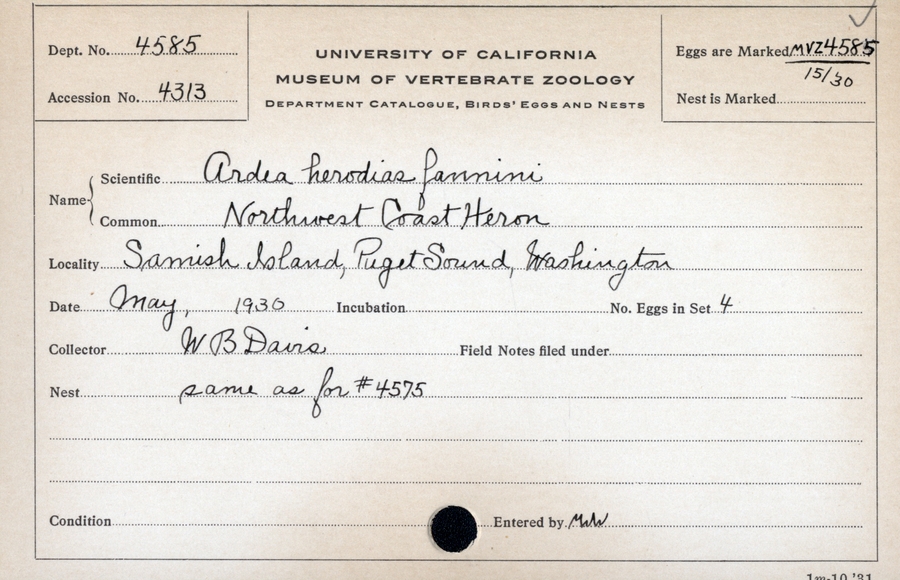 Dept. No. 4585
Accession No. 4313
UNIVERSITY OF CALIFORNIA
MUSEUM OF VERTEBRATE ZOOLOGY
DEPARTMENT CATALOGUE, BIRDS' EGGS AND NESTS
Eggs are Marked MVZ4585
15/30
Nest is Marked
Name
Scientific Ardea herodias fannini
Common Northwest Coast Heron
Locality Samish Island, Puget Sound, Washington
Date May, 1930 Incubation No. Eggs in Set 4
Collector W B Davis Field Notes filed under
Nest same as for #4575
Condition Entered by
1m-10,'31